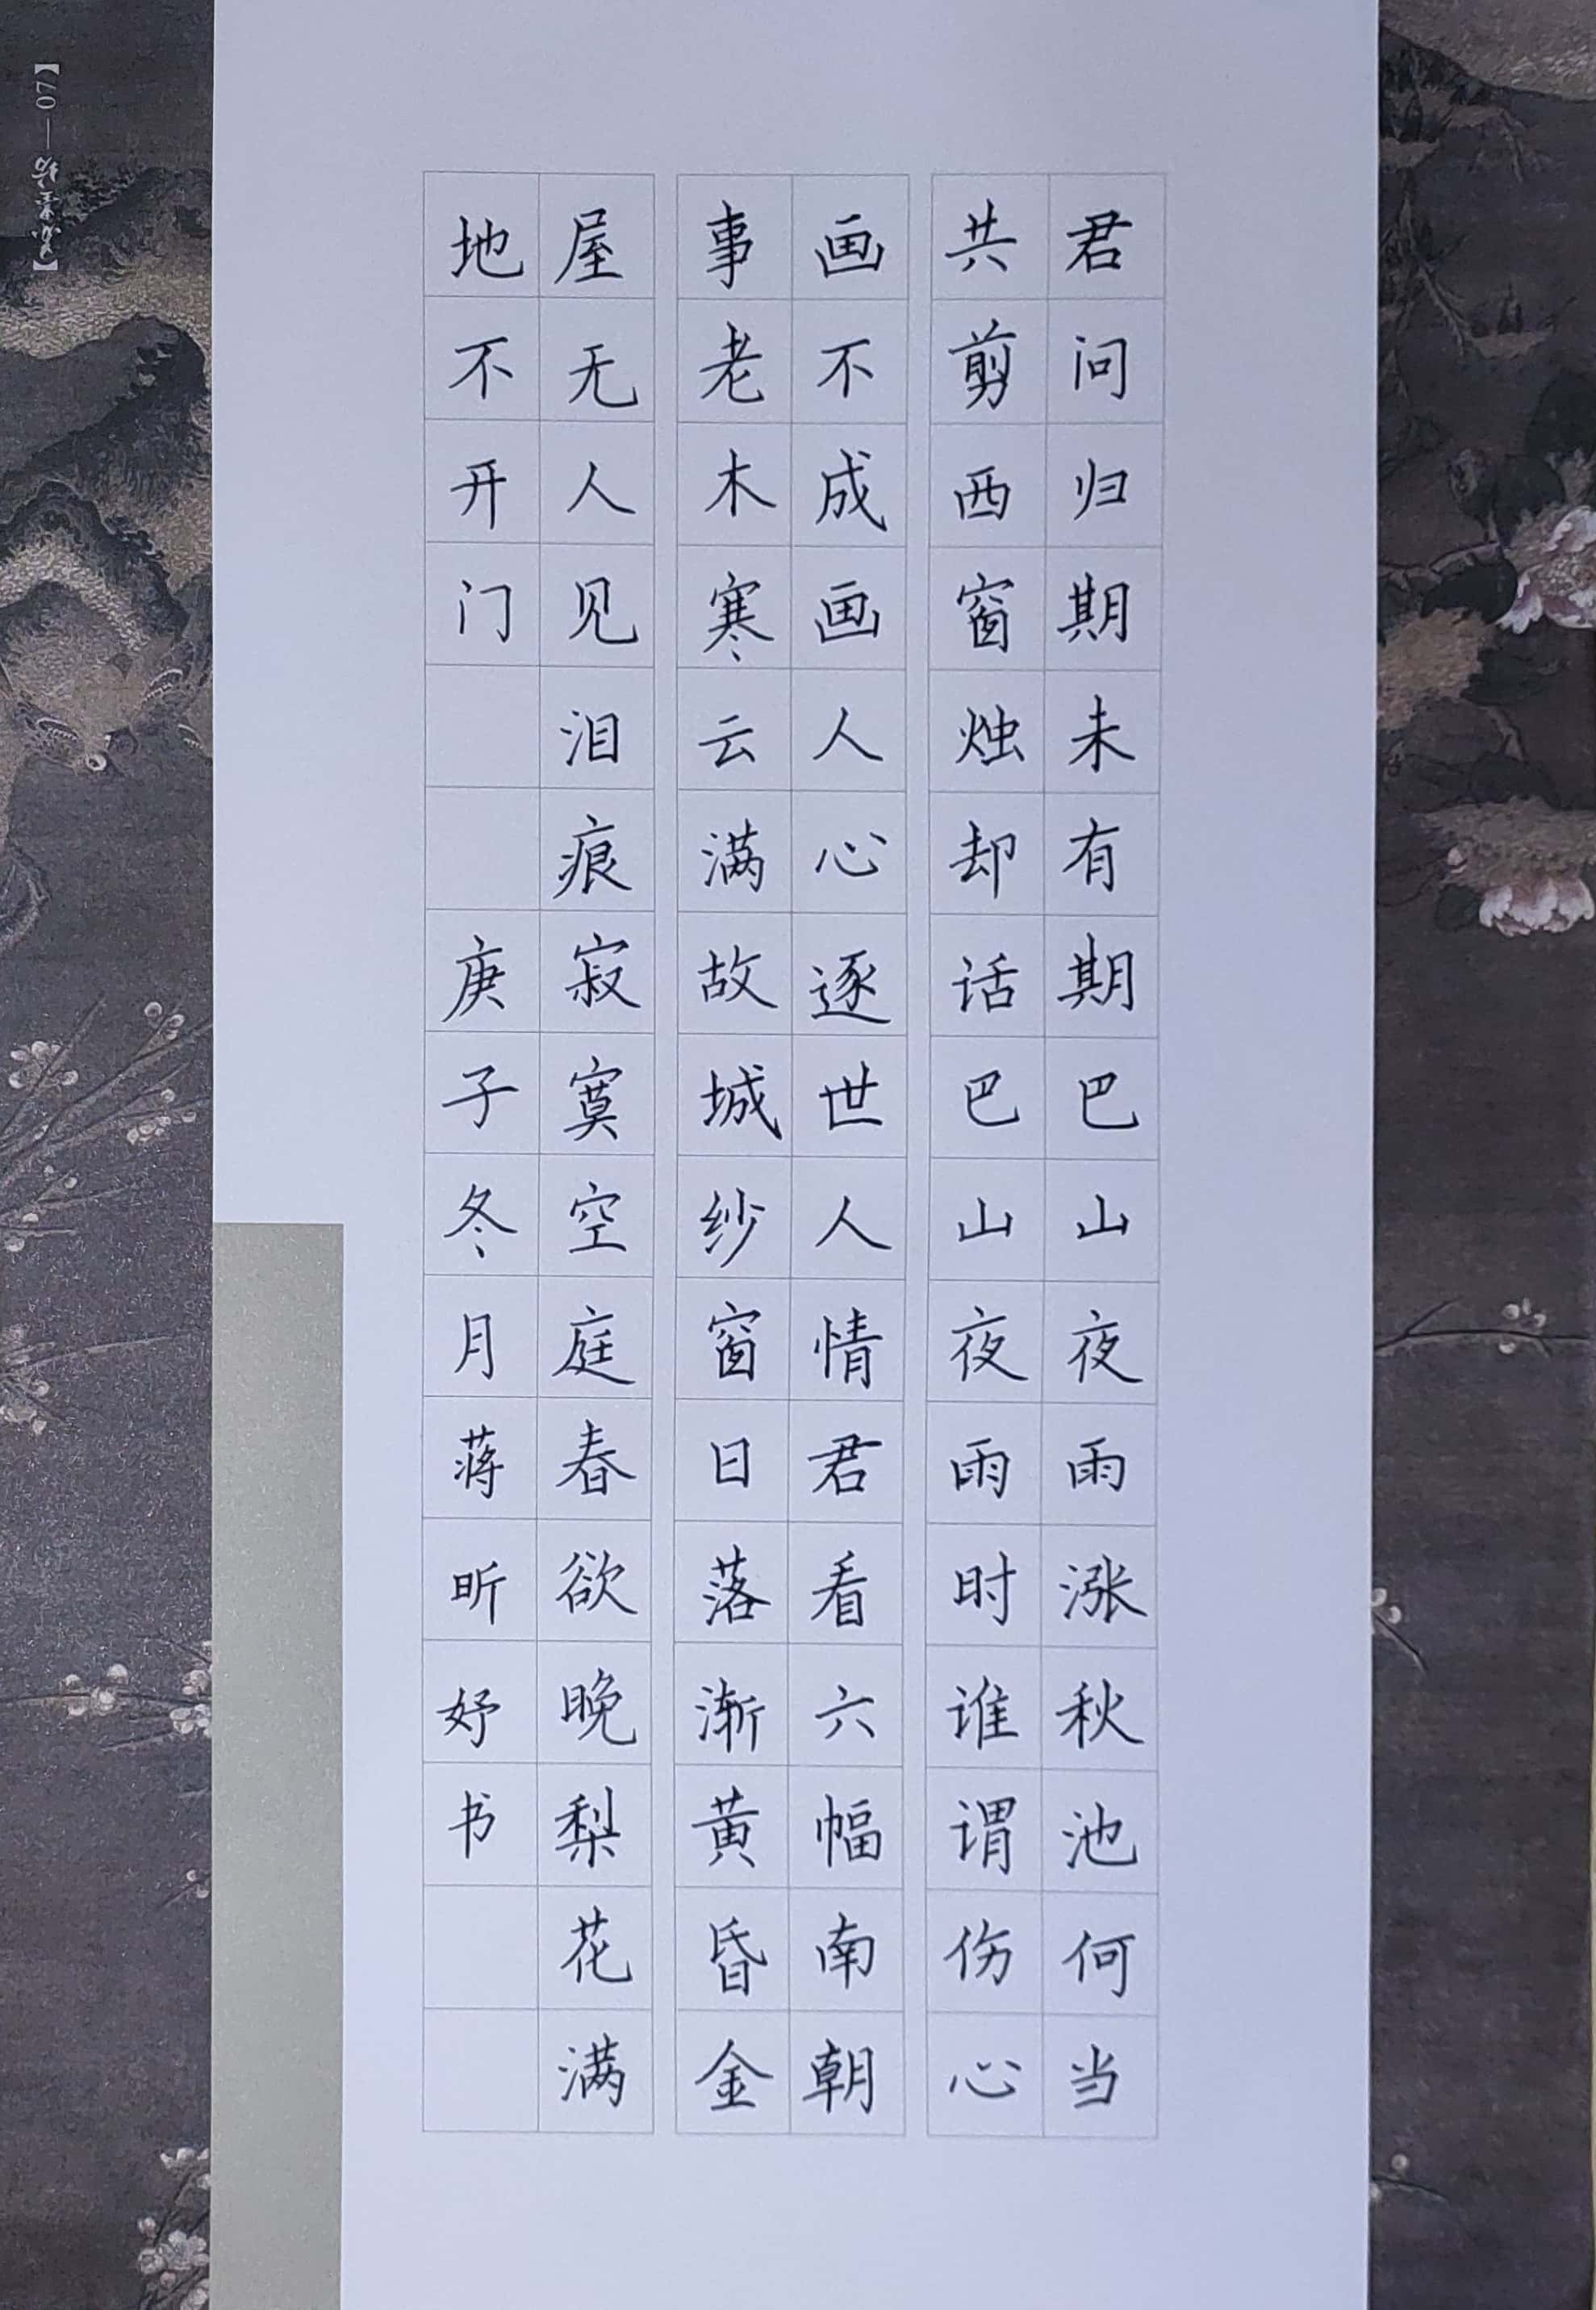 君问归期未有期巴山夜雨涨秋池何当
共剪西窗烛却话巴山夜雨时谁谓伤心
画不成画人心逐世人情君看六幅南朝
事老木寒云满故城纱窗日落渐黄昏金
屋无人见泪痕寂寞空庭春欲晚梨花满
地不开门
庚子冬月蒋昕妤书
07